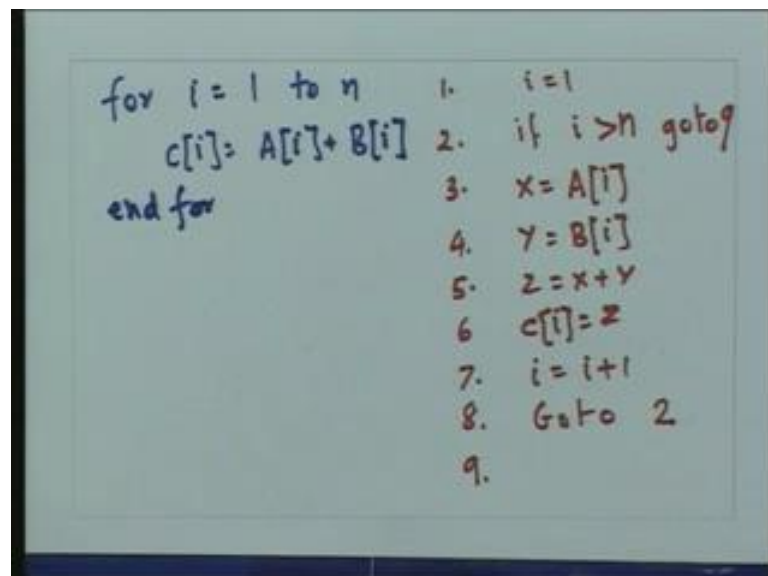 for i = 1 to n
c[i]= A[i]+ B[i]
end for
1. i=1
2. if i >n goto9
3. X= A[i]
4. Y= B[i]
5. Z=X+Y
6 c[i]=Z
7. i = i+1
8. Goto 2
9.